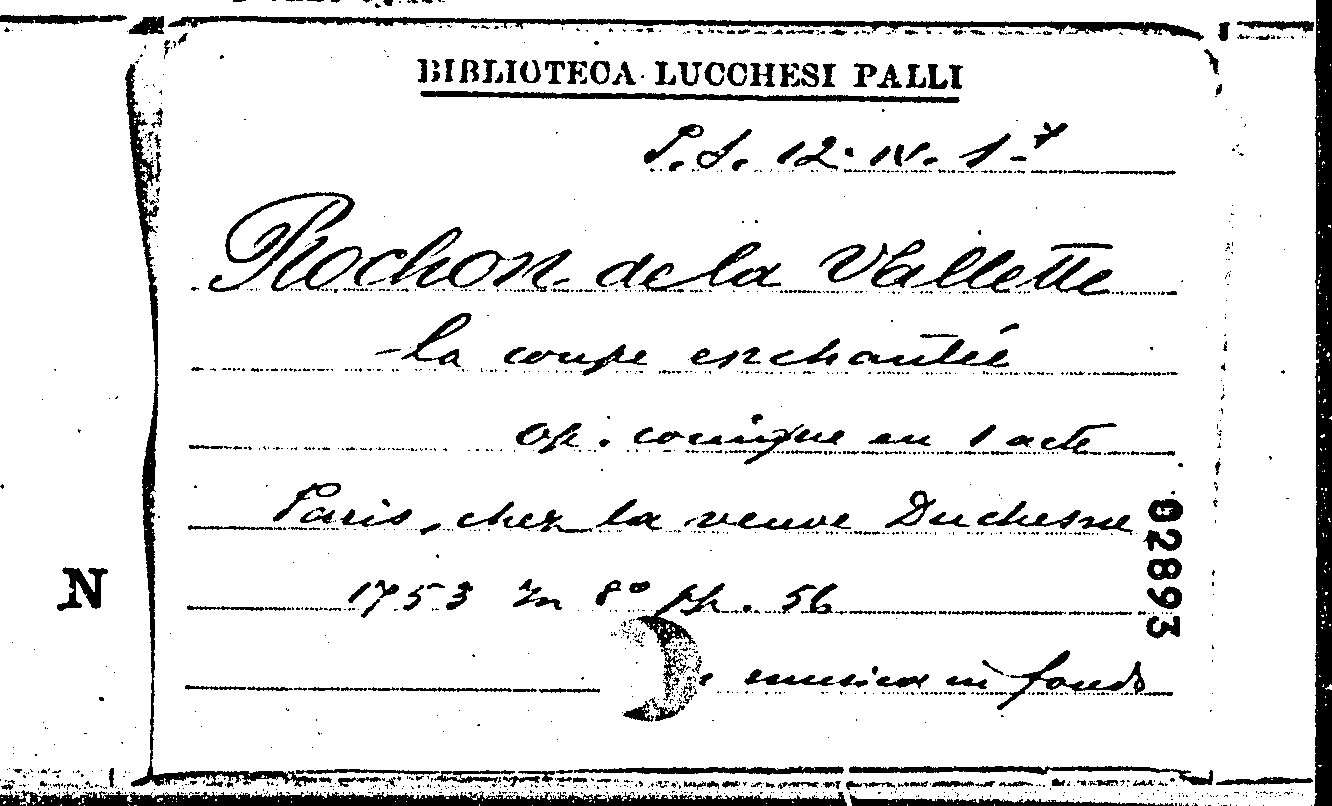 BIBLIOTECA LUCCHESI PALLI
P.S. 12. IV. 1-4
Rochon de la Vallette
- la coupe enchantée
op. comique en 1 acte
Paris, chez la veuve Duchesne
1753 in 8° pp. 56
musica in fondo
N
02893